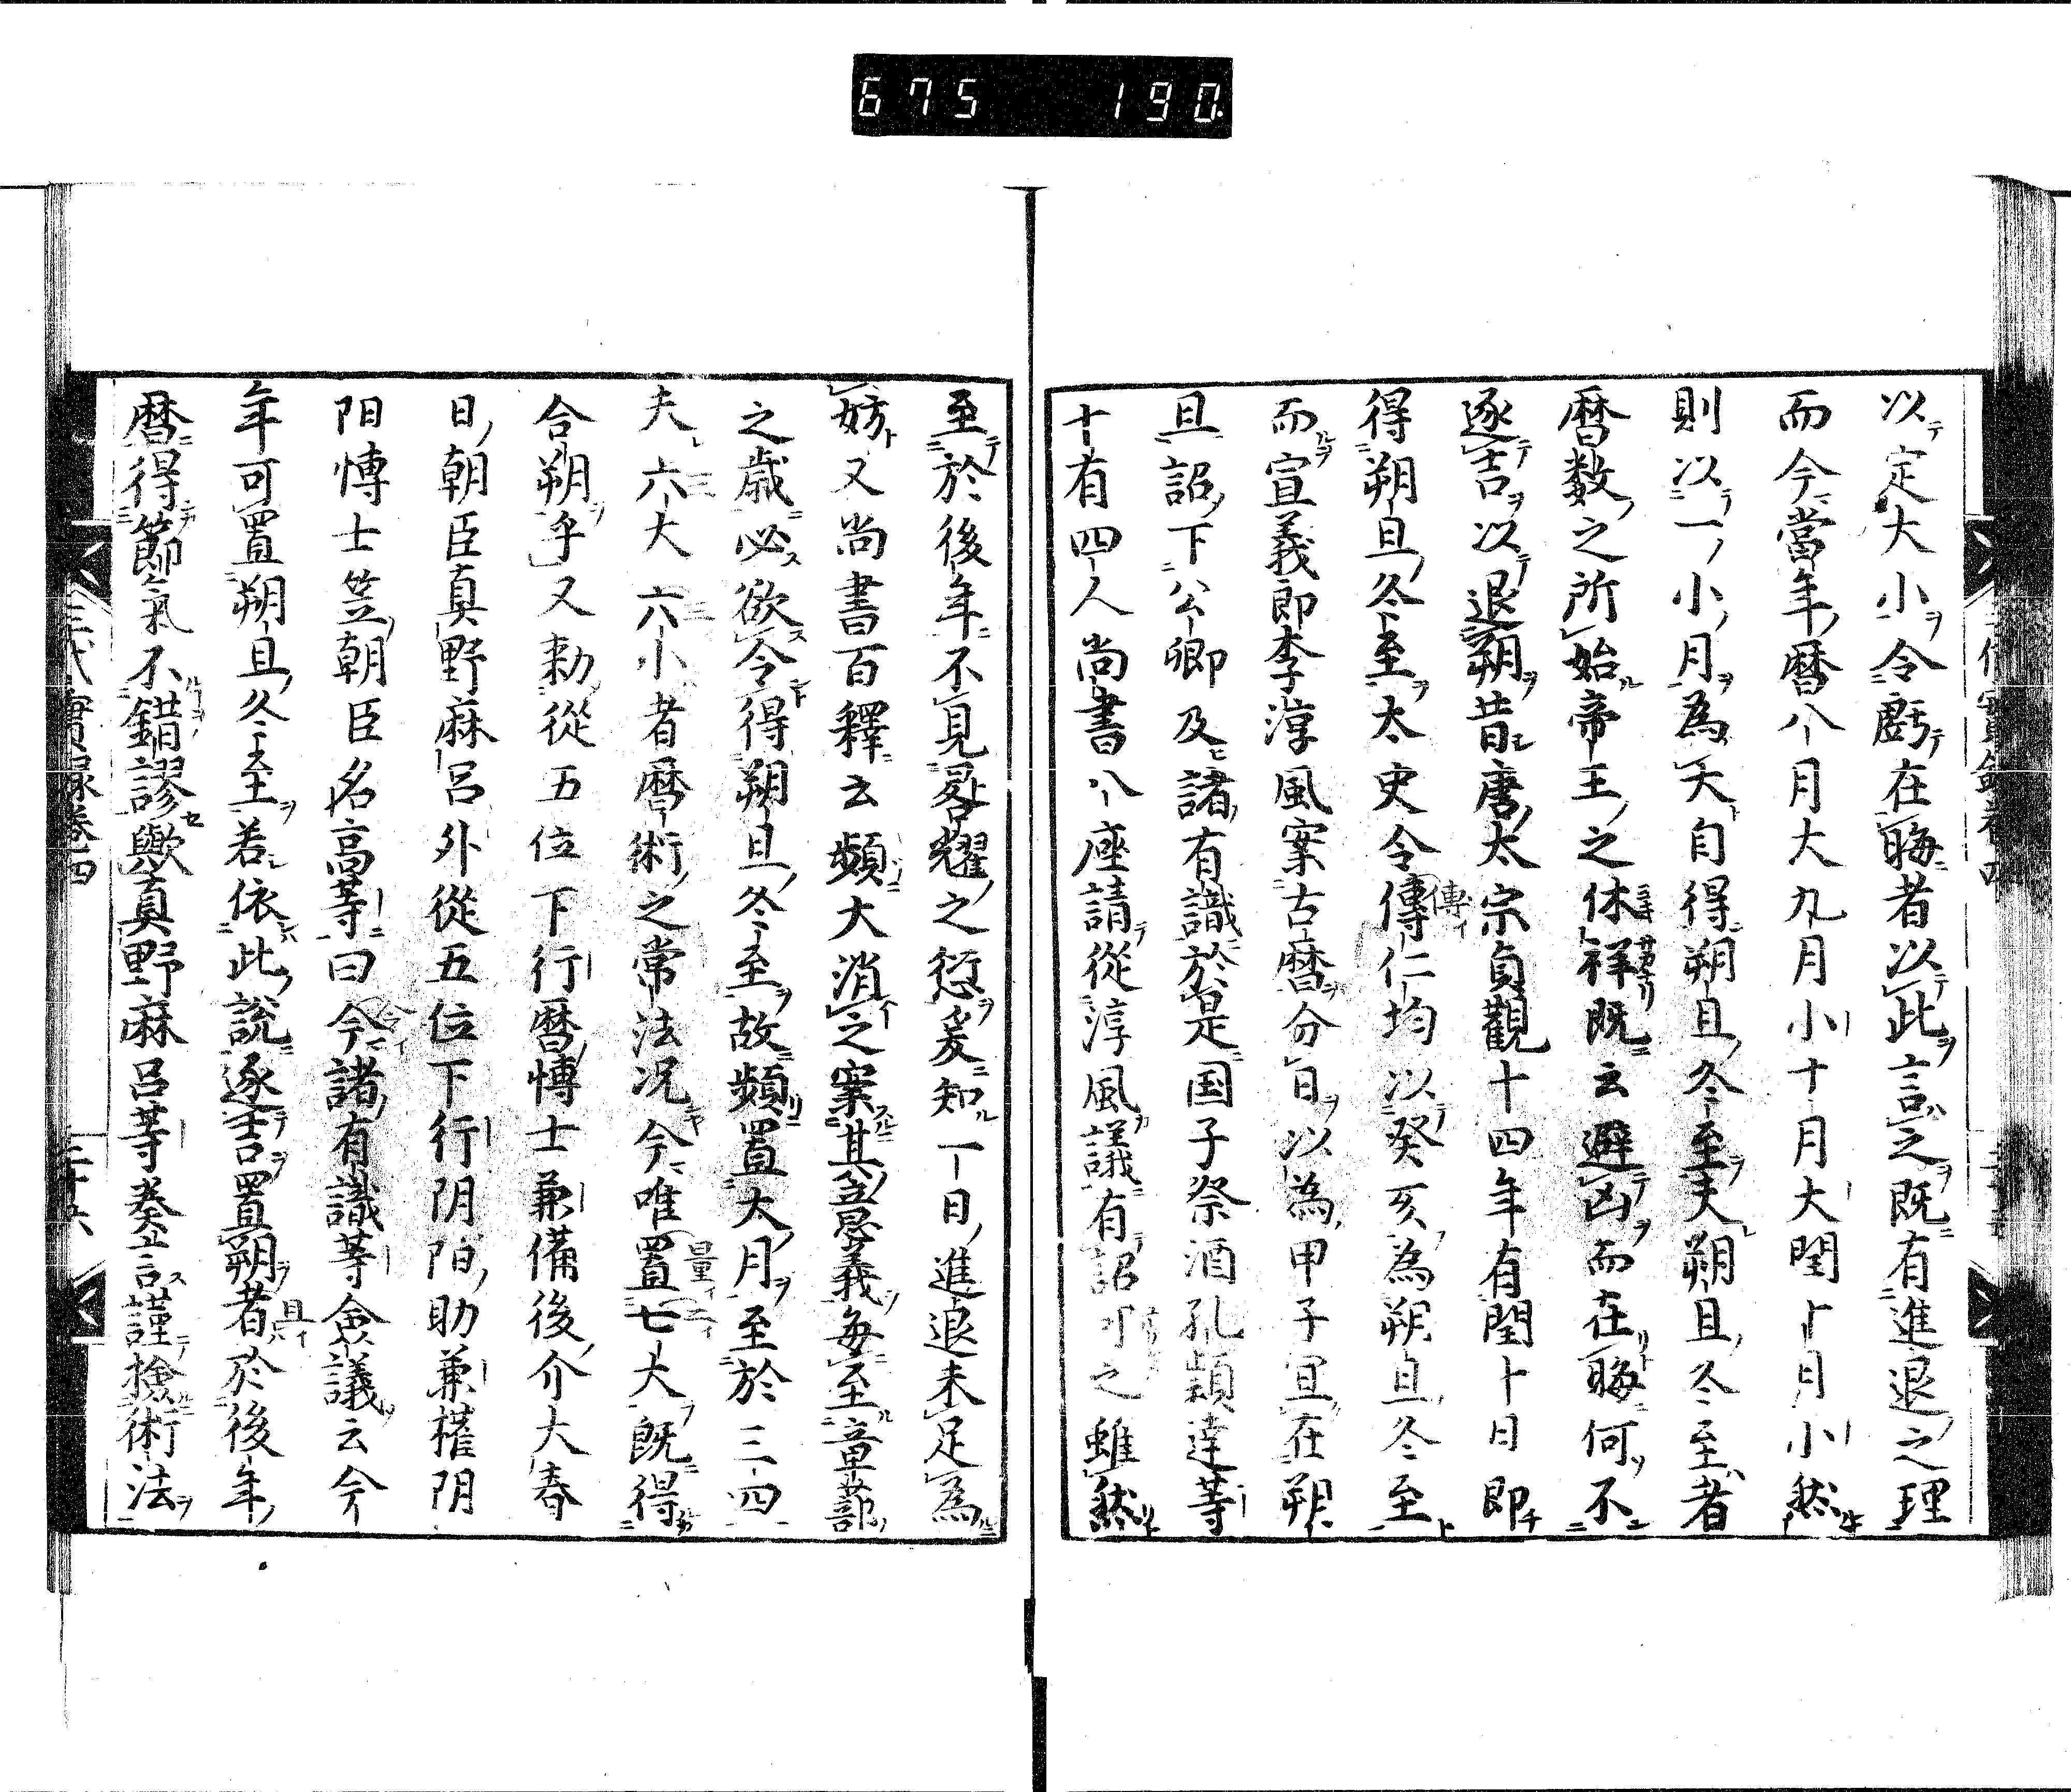 675 190
以定大小令虧在晦者以此言之既有進退之理
而今當年暦八月大九月小十月大閏十月小然
則以一小月為大自得朔旦冬至夫朔旦冬至者
暦数之所始帝王之休祥既云避凶而在晦何不
逐吉以退朔昔唐太宗貞觀十四年有閏十日即
得朔旦冬至太史令傅仁均以癸亥為朔旦冬至
而宣義郎李淳風案古暦分日以為甲子宜在朔
旦詔下公卿及諸有識於是国子祭酒孔頴達等
十有四人尚書八座請從淳風議有詔可之雖然
至於後年不見晷耀之愆爰知一日進退未足為
妨又尚書百釋云頻大消之案其立恩義毎至章蔀
之歳必欲令得朔旦冬至故頻置大月至於三四
夫六大六小者暦術之常法况今唯置七大既得
合朔乎又勅從五位下行暦博士兼備後介大春
日朝臣真野麻呂外從五位下行阴阳助兼權阴
阳博士笠朝臣名高等曰今諸有識等僉議云今
年可置朔旦冬至若依此説逐吉置朔者於後年
暦得節氣不錯謬歟真野麻呂等奏言謹撿術法
三代實録巻四
二十六